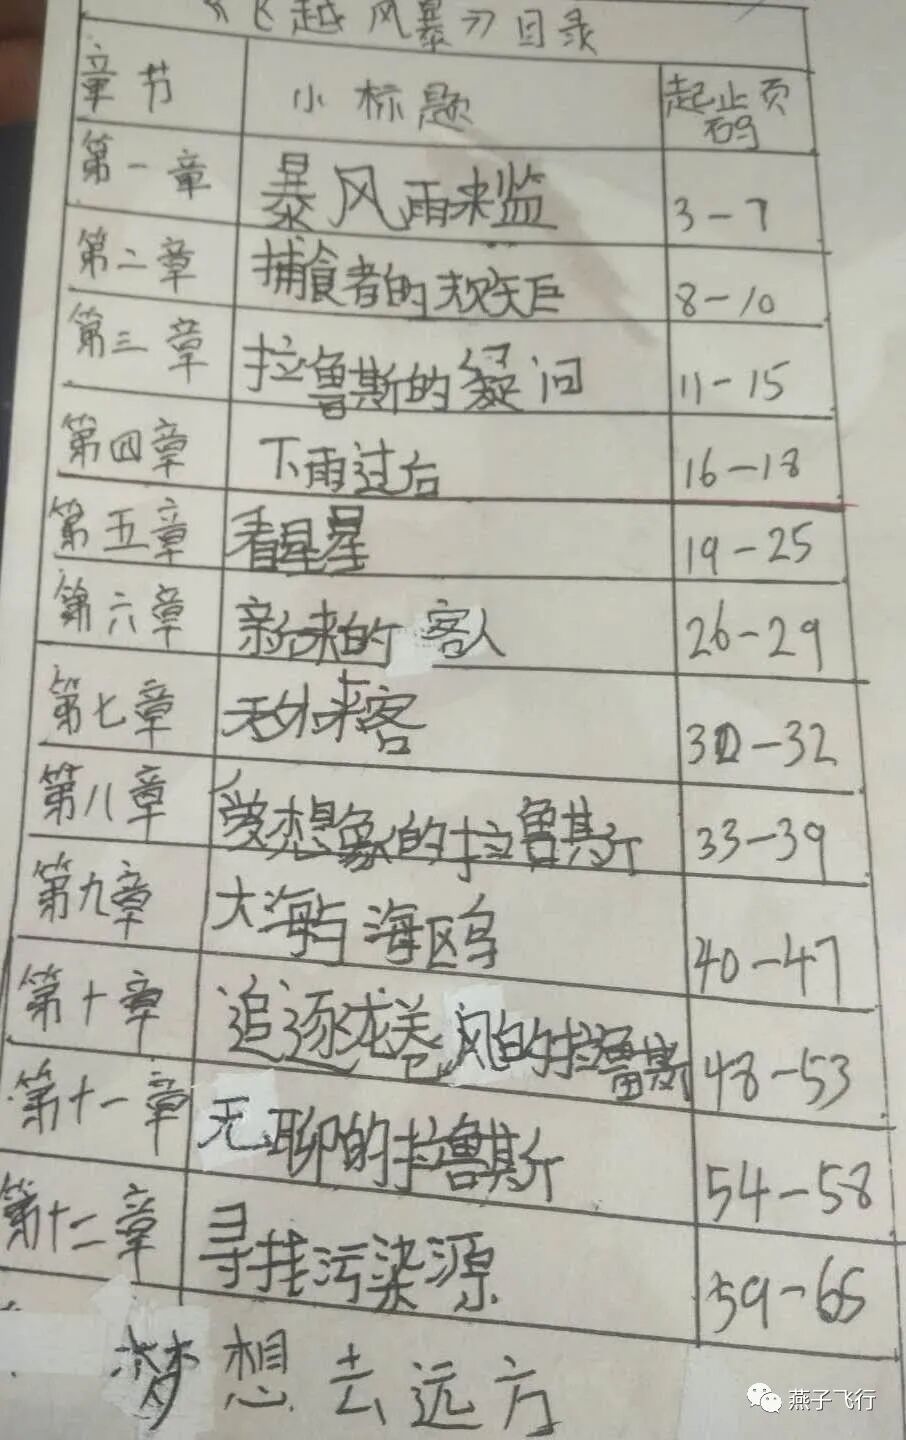 《飞越风暴》目录
章节 小标题 起止页码
第一章 暴风雨来监 3-7
第二章 捕食者的规矩 8-10
第三章 拉鲁斯的疑问 11-15
第四章 下雨过后 16-18
第五章 看星星 19-25
第六章 新来的客人 26-29
第七章 天外来客 30-32
第八章 爱想象的拉鲁斯 33-39
第九章 大海与海鸥 40-47
第十章 追逐龙卷风的拉鲁斯 48-53
第十一章 无聊的拉鲁斯 54-58
第十二章 寻找污染源 59-65
梦想去远方
燕子飞行